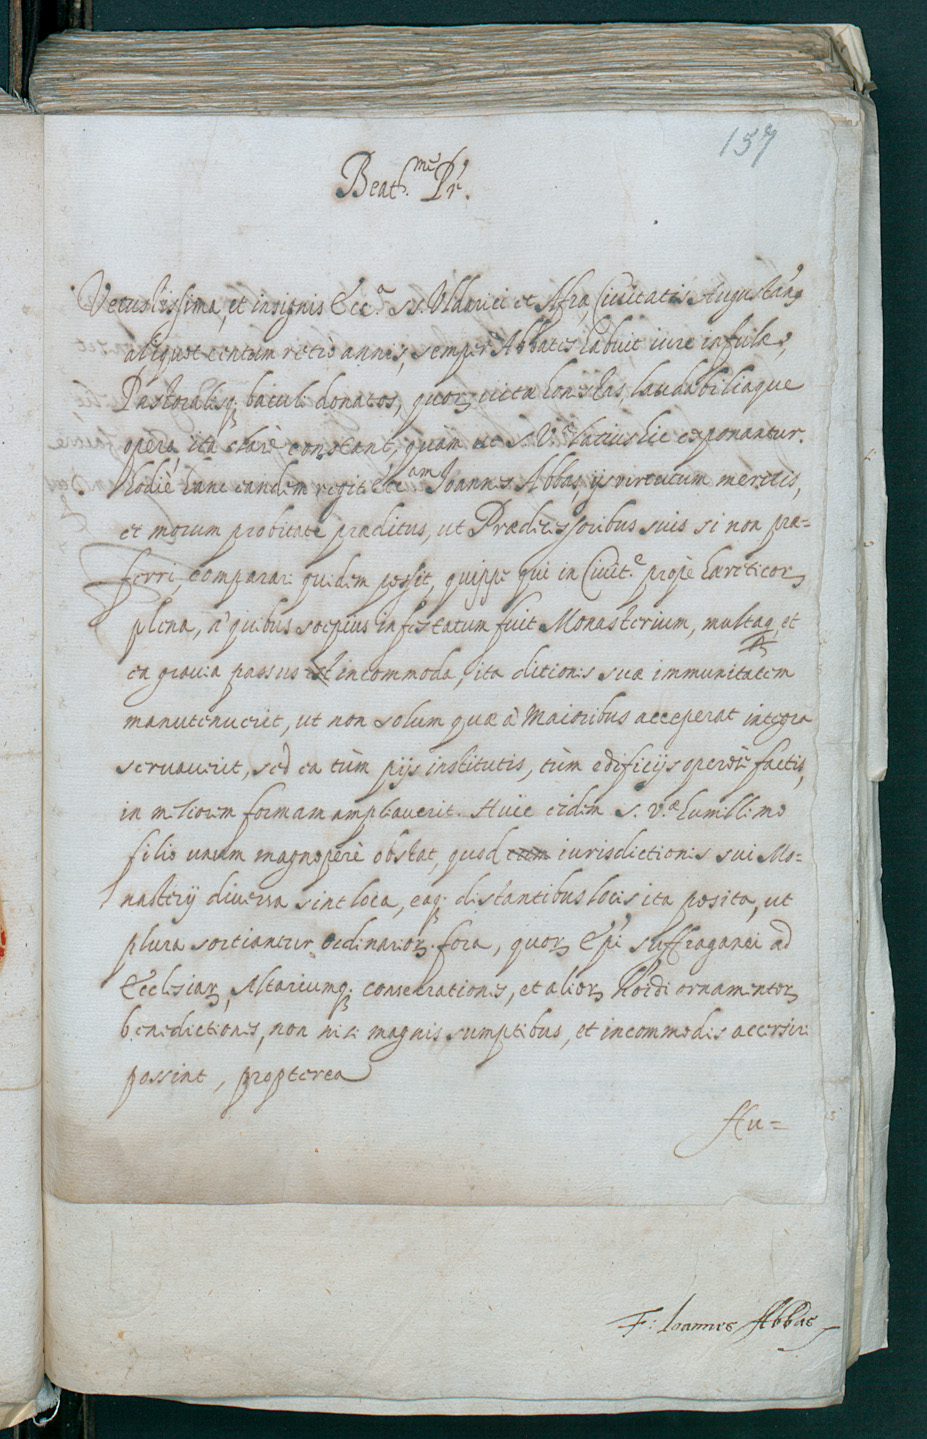 157
Beat.me Pr.
Vetustissima, et insignis Ecc.a SS. Uldarici et Afræ, Ciuitatis Augustanæ
aliquot centum retro annis, semper Abbates habuit iure infulæ,
Pastoralisq; baculi donatos, quor, vitæ honestas, laudabiliaque
opera ita clare constant, quàm ut S. V.æ latius hic exponantur.
hodie hanc eandem regit Ecc.am Joannes Abbas, ijs virtutum meritis,
et morum probitate præditus, ut Prædecessoribus suis si non præ=
ferri, comparari quidem possit, quippe qui in Ciuit.e propè hæreticor,
plena, à quibus sæpius infestatum fuit Monasterium, multaq, et
ea grauia passus est incommoda, ita ditionis suæ immunitatem
manutenuerit, ut non solum quæ à Maioribus acceperat integra
seruauerit, sed ea tùm pijs institutis, tùm edificijs operosè factis,
in meliorem formam ampliauerit. Huic eidem S. V.æ humillimo
filio unum magnoperè obstat, quod cum iurisdictionis sui Mo=
nasterij diuersa sint loca, eaq; distantibus locis ita posita, ut
plura sortiantur ordinarior, fora, quor, Epi Suffraganei ad
Ecclesiar, Altariumq; consecrationes, et alior, hmõdi ornamentor,
benedictiones, non nisi magnis sumptibus, et incommodis accersiri
possint, propterea
Hu=
F: Ioannes Abbas